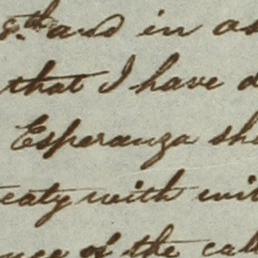 8.th and in as
that I have
Esperanza sh
eaty with wi
of the cal